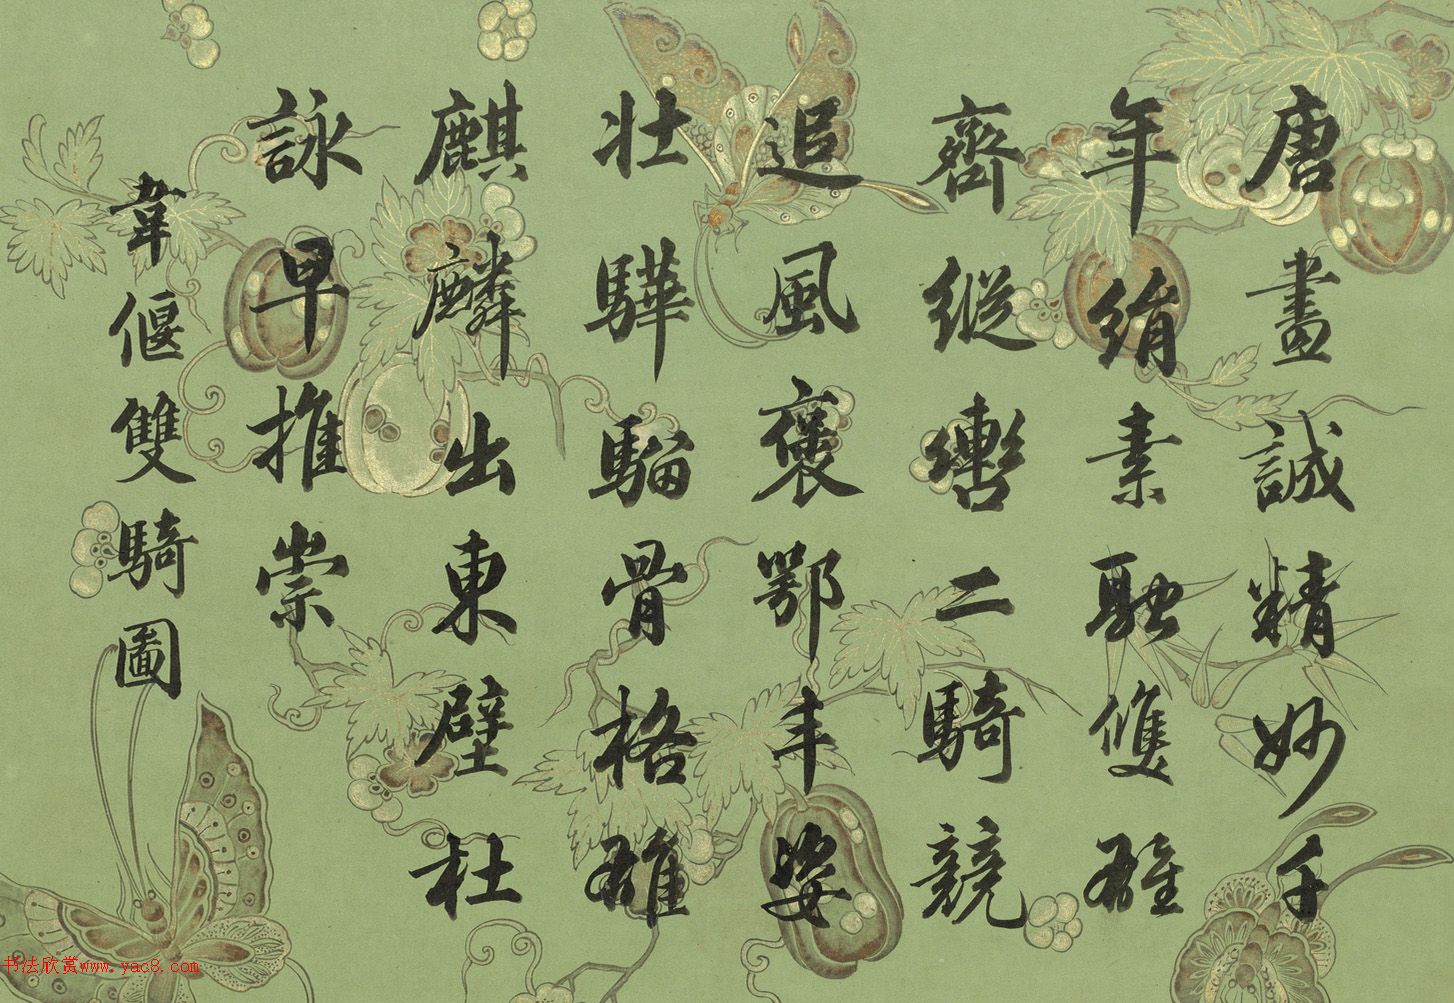 唐畫誠精妙千
年絹素融雙雄
齊縱轡二騎競
追風褒鄂丰姿
壯驊騮骨格雄
麒麟出東壁杜
詠早推崇
韋偃雙騎圖
书法欣赏www.yac8.com